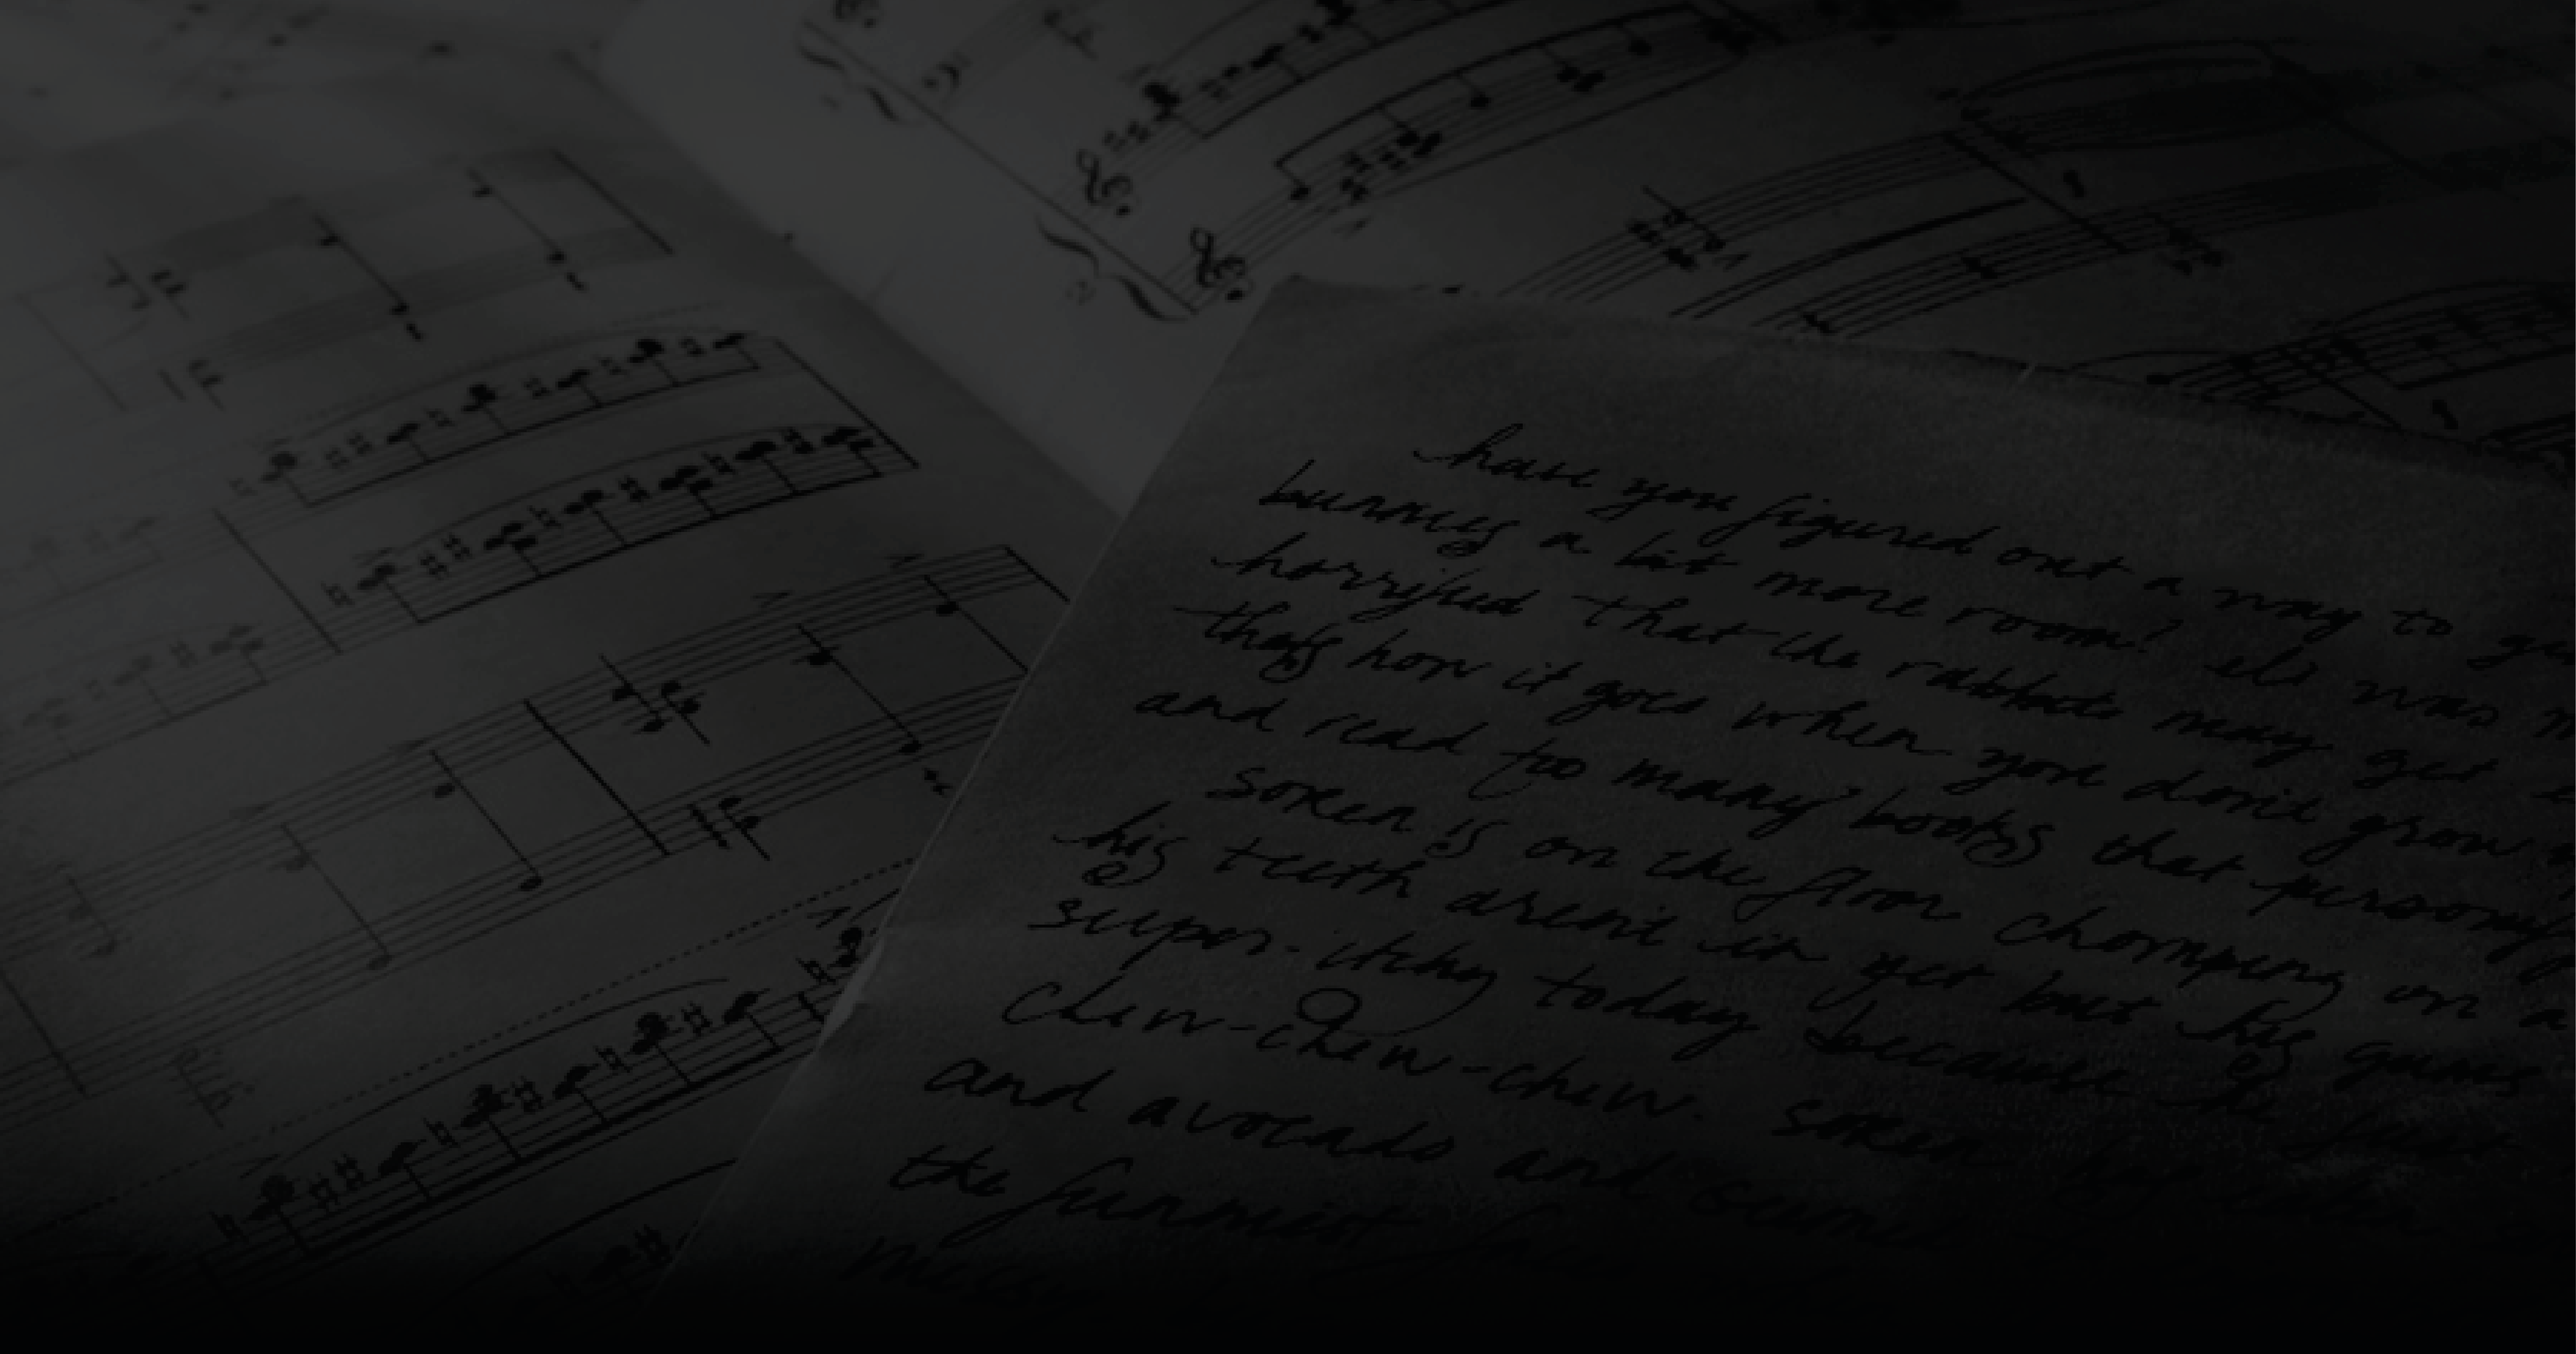 have you figured out a way to
bunnies a bit more room? eli was
horrified that the rabbits may get
that's how it goes when you don't grow
and read too many books that personify
soren is on the floor chomping on a
his teeth aren't in yet but his gums
super-itchy today because he just
chew-chew-chew. soren
and avocado and
the funniest